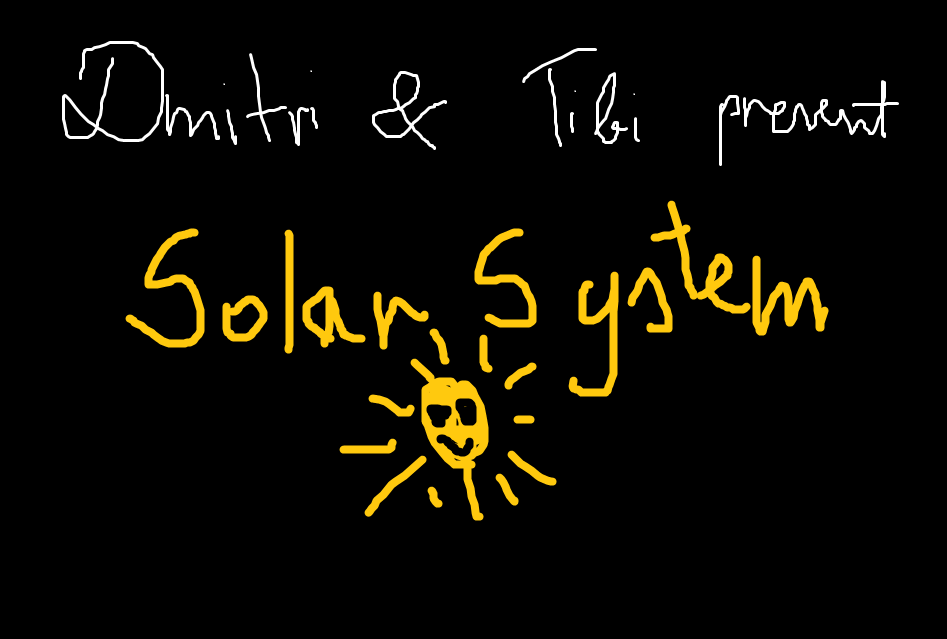 Dmitri & Tibi present
Solar System